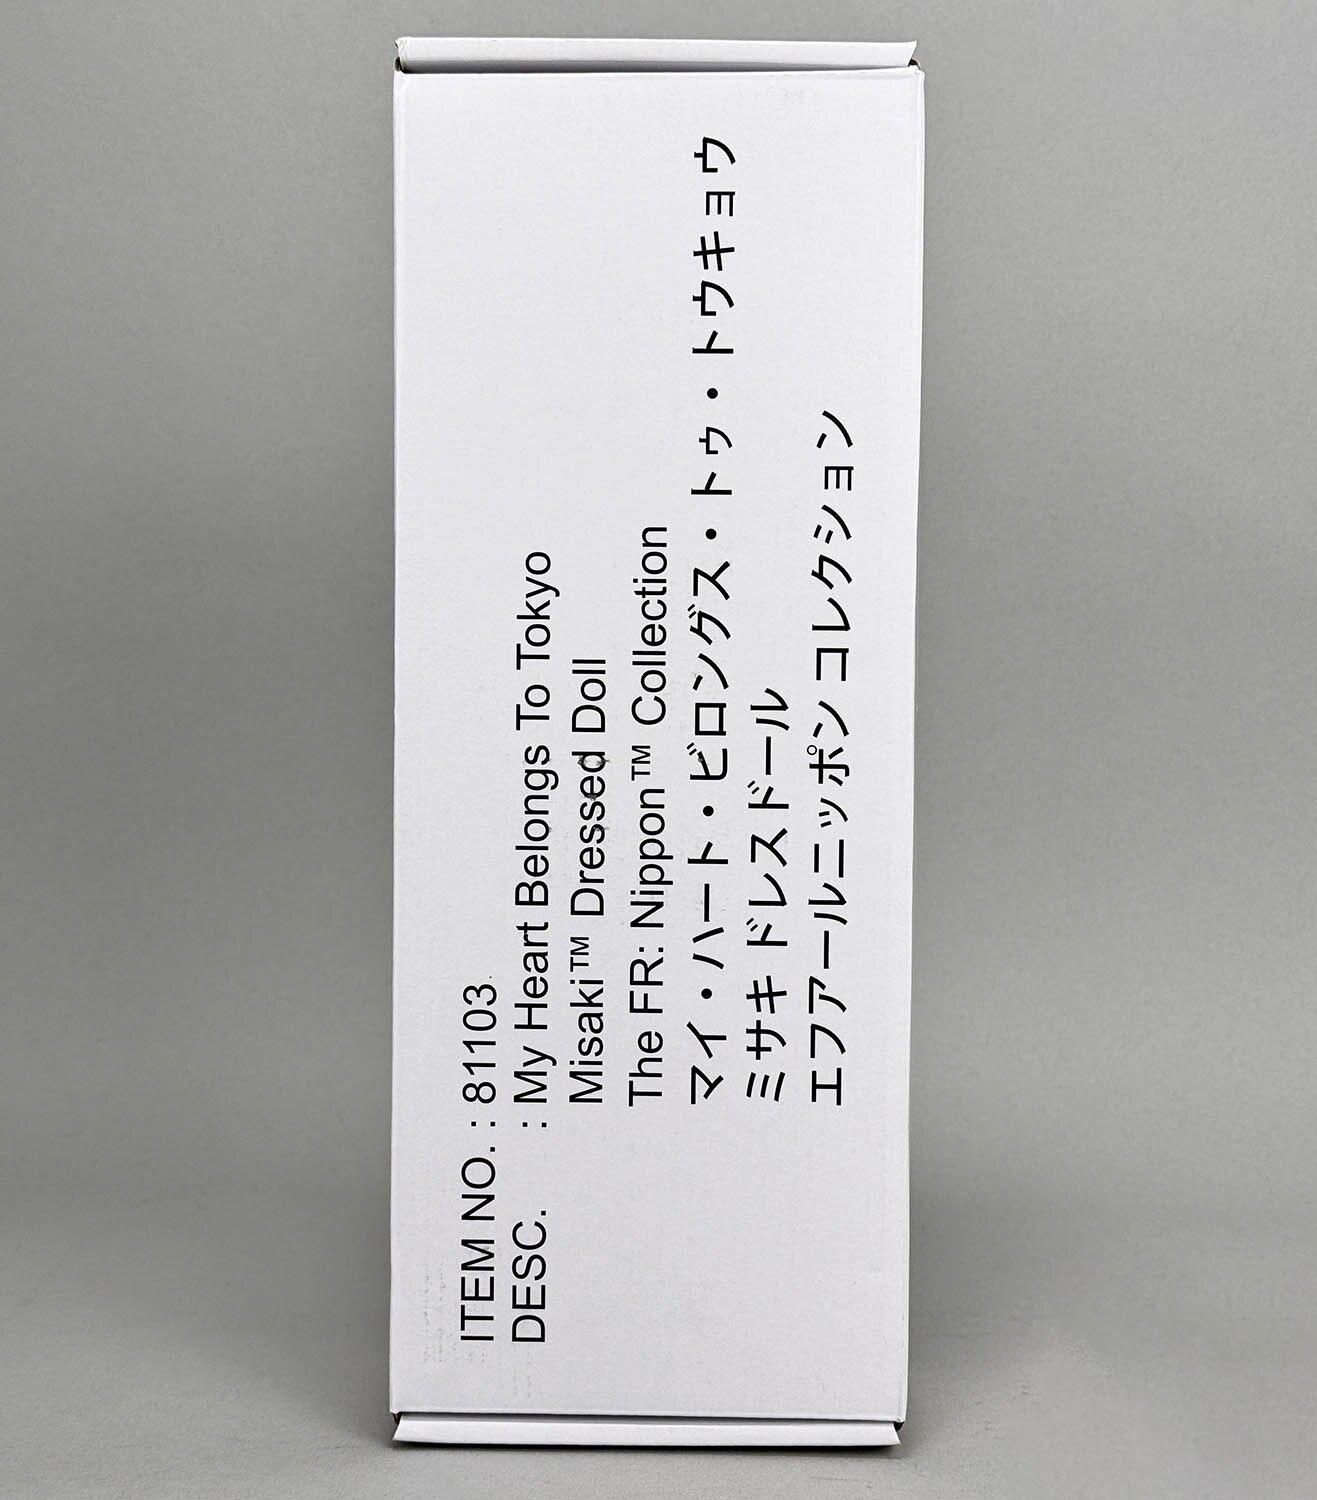 ITEM NO. : 81103
DESC. : My Heart Belongs To Tokyo
Misaki™ Dressed Doll
The FR: Nippon™ Collection
マイ・ハート・ビロングス・トゥ・トウキョウ
ミサキ ドレスドール
エフアールニッポン コレクション